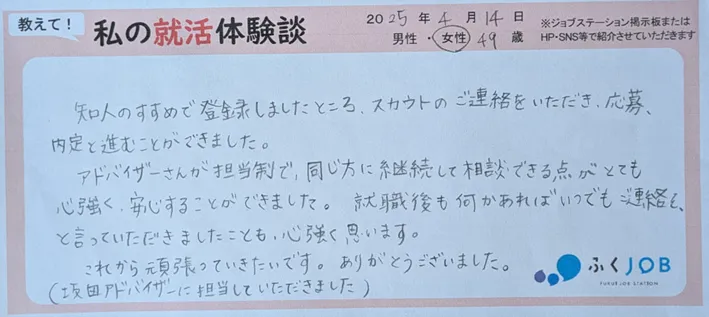 教えて!
私の就活体験談
2025年4月14日
男性・女性 49歳
※ジョブステーション掲示板または
HP・SNS等で紹介させていただきます
知人のすすめで登録しましたところ、スカウトのご連絡をいただき、応募、
内定と進むことができました。
アドバイザーさんが担当制で、同じ方に継続して相談できる点がとても
心強く、安心することができました。就職後も何かあればいつでもご連絡を、
と言っていただきましたことも、心強く思います。
これから頑張っていきたいです。ありがとうございました。
(坂田アドバイザーに担当していただきました)
ふくJOB
FUKUI JOB STATION